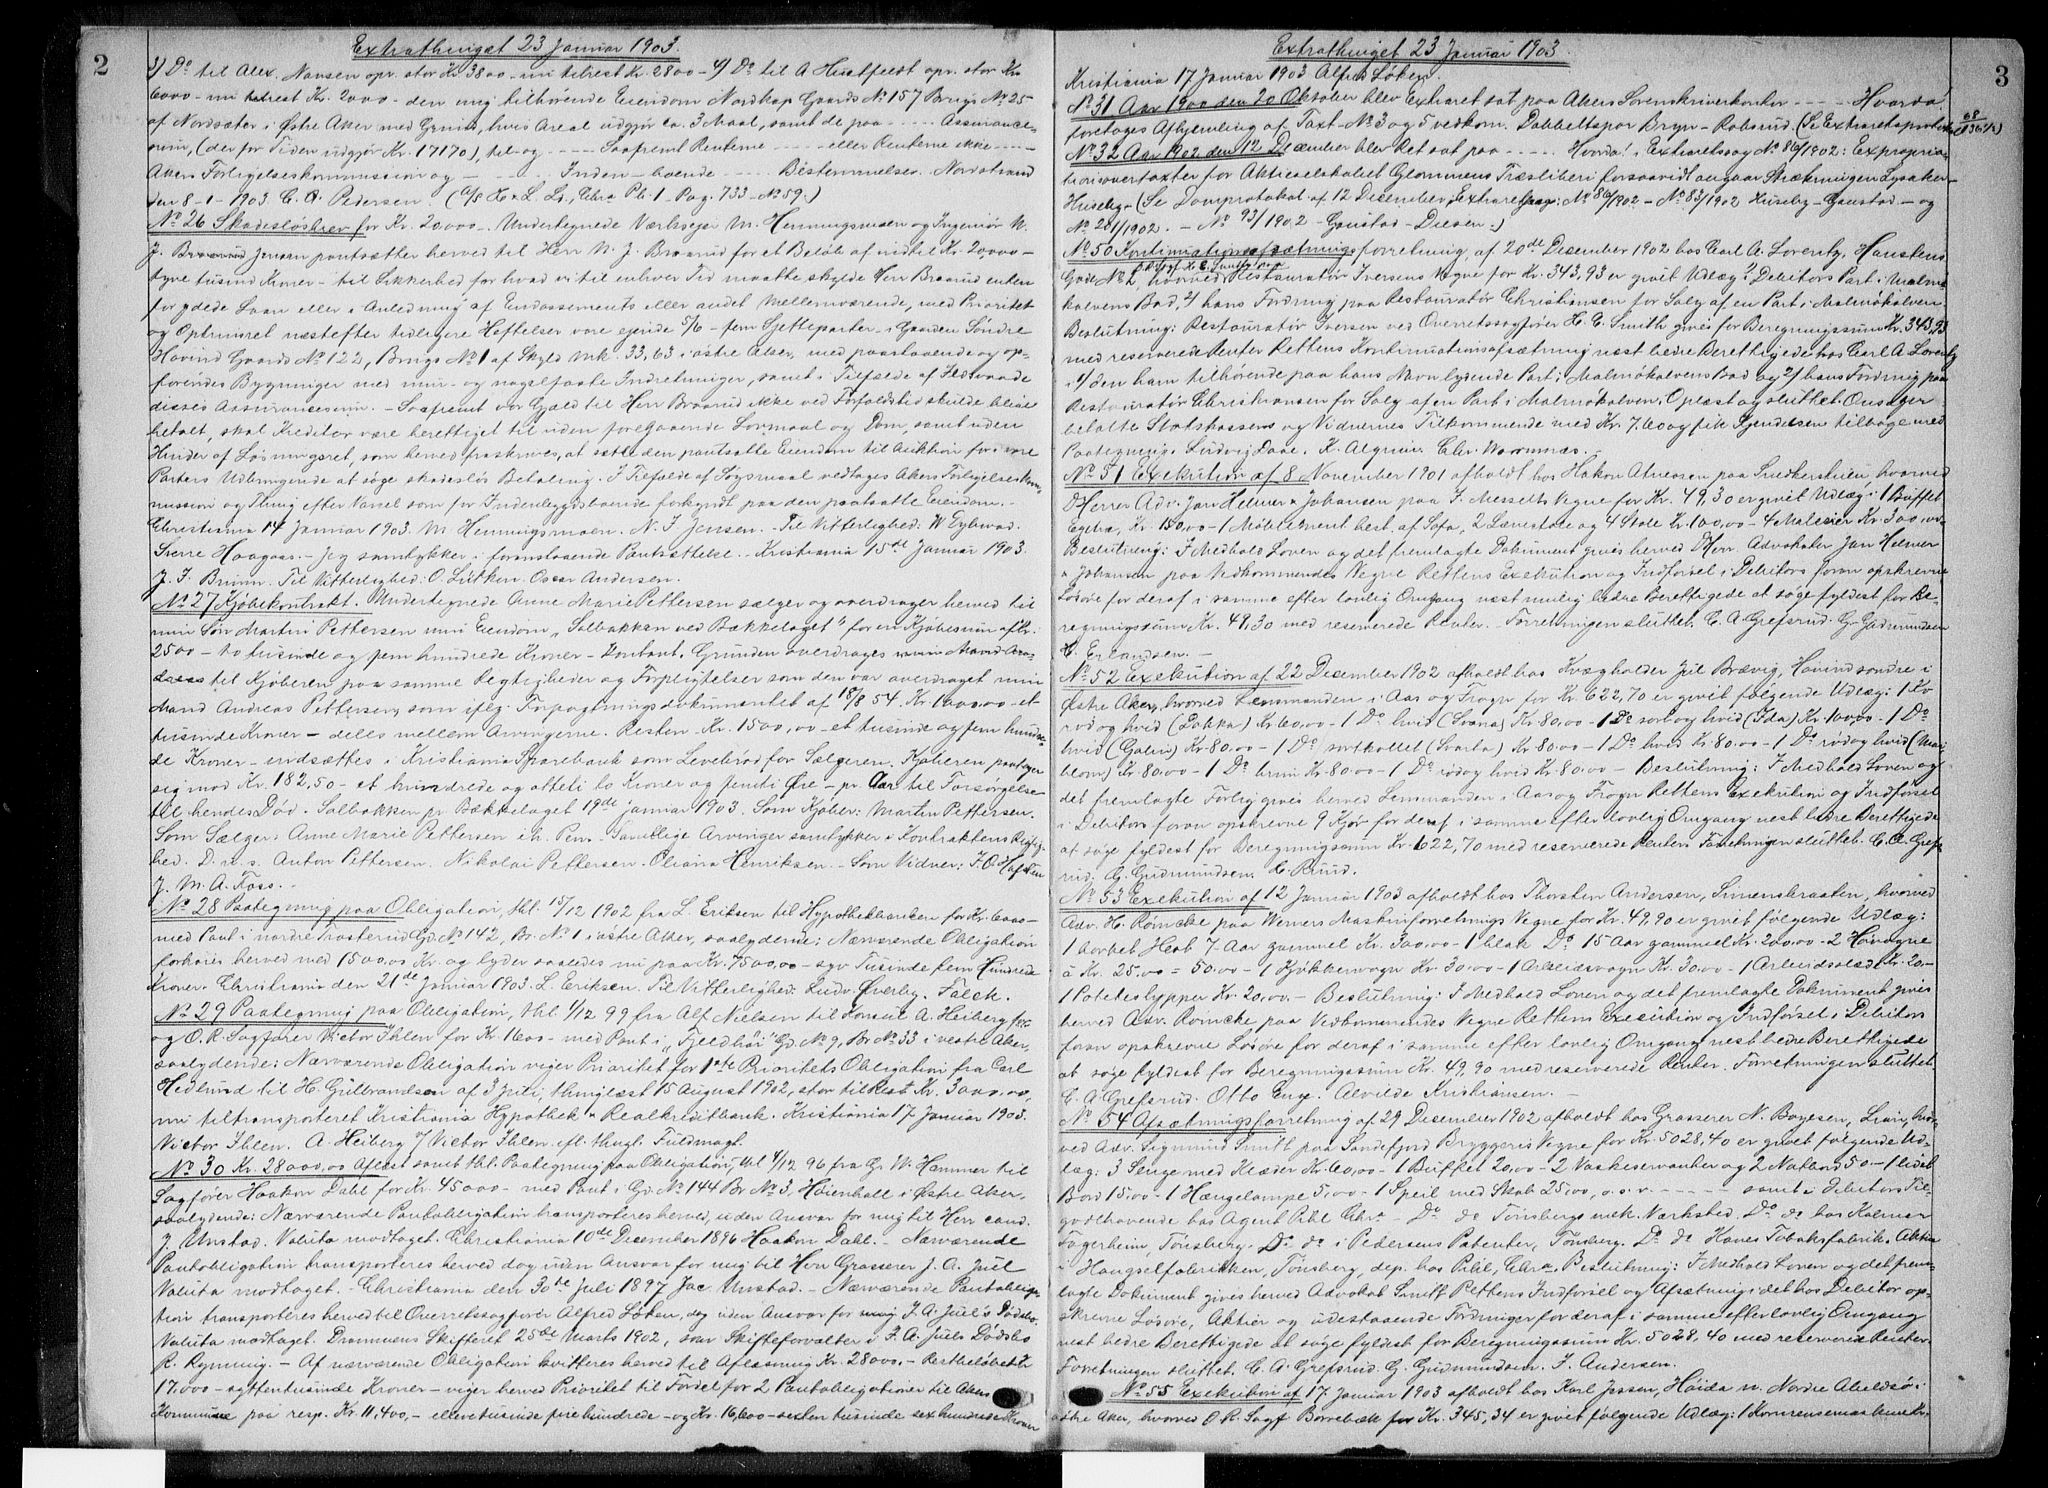 2
Extrathinget 23 Januar 1903.
3) Do til Alex. Nansen opr. stor Kr. 3800 - nu tilrest Kr. 2800 - 4) Do til A Huitfeldt opr. stor Kr.
6000 - nu tilrest Kr. 2000 - den mig tilhørende Eiendom Nordkap Gaards No 157 Brugs No 25
af Nordsæter i Østre Aker med Grund, hvis Areal udgjør ca. 3 Maal, samt de paa - - - - Assurance-
sum, (der for Tiden udgjør Kr. 17170) til og - - - - Saafremt Renterne - - - - eller Renterne ikke - - - -
Akers Forligelseskommission og - - - - Inden - boende - - - - Bestemmelser. Nordstrand
den 8 - 1 - 1903 C. B. Pedersen.
No 26 Skadesløsbrev for Kr. 20000 - Undertegnede Værkseier M. Henningsmoen og Ingeniør N.
J. Jensen pantsætter herved til Herr N. J. Braarud for et Beløb af indtil Kr. 20000 -
tyve tusind Kroner - til Sikkerhed for hvad vi til enhver Tid maatte skylde Herr Braarud enten
for ydede Laan eller i Anledning af Endossements eller andet Mellemværende, med Prioritet
og Optrinsret næstefter tidligere Heftelser vore eiende 5/6 - fem Sjetteparter - i Gaarden Søndre
Hovind Gaards No 122, Brugs No 1 af Skyld Mk. 33,63 i østre Aker, med paastaaende og op-
førendes Bygninger med mur- og nagelfaste Indretninger, samt i Tilfælde af Ildsvaade
disses Assurancesum. - Saafremt vor Gjæld til Herr Braarud ikke ved Forfaldstid skulde blive
betalt, skal Kreditor være berettiget til uden foregaaende Lovmaal og Dom, samt uden
Hinder af Løsningsret, som herved fraskrives, at sætte den pantsatte Eiendom til Auktion for i dens
Parters Udbringende at søge skadesløs Betaling. I Tilfælde af Søgsmaal vedtages Akers Forligelseskom-
mission og Thing efter Varsel som for Indenbygdsboende forkyndt paa den pantsatte Eiendom.
Christiania 14 Januar 1903. M Henningsmoen. N. J. Jensen. Til Vitterlighed:
Sverre Haagaas. - Jeg samtykker i foranstaaende Pantsættelse. - Kristiania 15de Januar 1903.
J. F. Bruun. Til Vitterlighed: O. Lütken. Oscar Andersen.
No 27 Kjøbekontrakt. Undertegnede Anne Marie Pettersen sælger og overdrager herved til
min Søn Martin Pettersen min Eiendom "Solbakken ved Bækkelaget" for en Kjøbesum af Kr.
2500 - to tusinde og fem hundrede Kroner - kontant. Grunden overdrages
til Kjøberen paa samme Regtigheder og Forpligtelser som den var overdraget min
Mand Andreas Pettersen, som iflg. Forpagtningsdokumentet af 18/8 54. Kr. 1000,00 - et
tusinde Kroner - deles mellem Arvingerne. Resten Kr. 1500,00 - et tusinde og fem hundre-
de Kroner - indsættes i Kristiania Sparebank som Levebrød for Sælgeren. Kjøberen paatager
sig mod Kr. 182,50 - et hundrede og otteti to Kroner og femti Øre - pr Aar til Forsørgelse
til hendes Død. Solbakken pr. Bækkelaget 19de Januar 1903. Som Kjøber: Martin Pettersen.
Som Sælger: Anne Marie Pettersen m. p. Pen. Samtlige Arvinger samtykker i Kontraktens Rigtig-
hed. D. u. s. Anton Pettersen. Nikolai Pettersen. Oliana Henriksen. Som Vidner: J. O. Hafsten
J. M. A. Foss. -
No 28 Paategning paa Obligation, thl. 15/12 1902 fra L. Eriksen til Hypothekbanken for Kr. 6000 -
med Pant i nordre Trosterud Gd. No 142, Br. No 1 i østre Aker, saalydende: Nærværende Obligation
forhøies herved med 1500,00 Kr. og lyder saaledes nu paa Kr. 7500,00 - syv Tusinde fem Hundrede
Kroner. Christiania den 21de Januar 1903. L. Eriksen. Til Vitterlighed: Ludv. Øverby. Falck.
No 29 Paategning paa Obligation, thl 1/12 99 fra Alf Nielsen til Konsul A. Heiberg
og O. R. Sagfører Victor Ihlen for Kr. 1600 - med Pant i "Fjeldhøi" Gd. No 9, Br. No 33 i vestre Aker,
saalydende: Nærværende Obligation viger Prioritet for 1ste Prioritets Obligation fra Carl
Hedlund til H. Gulbrandsen af 3 Juli, thinglæst 15 August 1902, stor tilrest Kr. 3000,00,
nu tiltransporteret Kristiania Hypothek & Realkreditbank. Kristiania 17 Januar 1903.
Victor Ihlen. A. Heiberg / Victor Ihlen efl. thingl. Fuldmagt.
No 30 Kr. 28000,00 Aflæst samt thl. Paategning paa Obligation, thl 4/12 96 fra G. W. Hammer til
Sagfører Haakon Dahl for Kr. 45000 - med Pant i Gd. No 144 Br No 3, Høienhall i Østre Aker,
saalydende: Nærværende Pantobligation transporteres herved, uden Ansvar for mig til Herr cand.
J. Unstad. Valuta modtaget. Christiania 10de December 1896 Haakon Dahl. - Nærværende
Pantobligation transporteres herved dog uden Ansvar for mig til Herr Grosserer J. A. Juel
Valuta modtaget. - Christiania den 30te Juli 1897 Jac Unstad. - Nærværende Pantobliga-
tion transporteres herved til Overretssagfører Alfred Løken, dog uden Ansvar for J. A. Juel's Dødsbo.
Valuta modtaget. Drammens Skifteret 25de Marts 1902, som Skifteforvalter i J. A. Juels Dødsbo
R. Rynning. - Af nærværende Obligation kvitteres herved til Aflæsning Kr. 28000. - Restbeløbet Kr
17,000 - sytten tusinde Kroner - viger herved Prioritet til Fordel for 2 Pantobligationer til Akers
Kommune paa resp. Kr. 11,400, - elleve tusinde fire hundrede - og Kr. 16,600 - sexten tusinde sex hundrede Kroner
Extrathinget 23 Januar 1903.
3
Kristiania 17 Januar 1903 Alfred Løken.
No 31 Aar 1900 den 20 Oktober blev Extraret sat paa Akers Sorenskriverkontor - - - - Hvorda!
foretages Afhjemling af Taxt No 3 og 5 vedkom. Dobbeltspor Bryn - Robsrud. (Se Extraretsprotok
No 32 Aar 1902 den 12 December blev Ret sat paa - - - - Hvorda! i Extraretssag No 86/1902: Expropria-
tionsovertaxter for Aktieselskabet Glommens Træsliberi forsaavidt angaar Strækningen Lysaker -
Huseby. (Se Domprotokol af 12 December, Extraretssag: No 86/1902 - No 83/1902 Huseby - Gaustad - og
No 261/1902. - No 93/1902 - Gaustad - Disen.)
No 50 Kontinuationsafsætningsforretning af 20de Desember 1902 hos Carl A. Lorentz, Hauskens
Gade No 2, hvorved Restauratør Iversens Vegne for Kr. 343,93 er givet Udlæg i Debitors Part i Malmø-
kalvens Bad, 2/ hans Fordring paa Restauratør Christiansen for Salg af en Part i Malmökalven.
Beslutning: Restauratør Iversen ved Overretssagfører H. E. Smith gives for Beregningssum Kr. 343,93
med reserverede Renter Rettens Kontinuationsafsætning næst bedre Berettigede hos Carl A Lorentz
i 1/ den ham tilhørende paa hans Navn lydende Part i Malmökalvens Bad og 2/ hans Fordring paa
Restauratør Christiansen for Salg af en Part i Malmökalven. Oplæst og sluttet. Onsager
betalte Statskassens og Vidnernes Tilkommende med Kr. 7.60 og fik Gjendelsen tilbage med
Paategning. Ludvig Daae. K. Algrim. Chr. Wormnæs. -
No 51 Exekution af 8 November 1901 afholdt hos Hakon Atneosen paa Snekkerstuen, hvorved
DHerrer Adv. Jan Helmer & Johansen paa J. Messelts Vegne for Kr. 49,30 er givet Udlæg i 1 Buffet
Egetræ, Kr. 150,00 - 1 Møblement best. af Sofa, 2 Lænestole og 4 Stole Kr. 100,00 - 4 Malerier Kr. 300,00 -
Beslutning: I Medhold Loven og det fremlagte Dokument gives herved DHerr. Advokater Jan Helmer
& Johansen paa Vedkommendes Vegne Rettens Exekution og Indførsel i Debitors foran opskrevne
Løsøre for deraf i samme efter lovlig Omgang næst mulig bedre Berettigede at søge fyldest for Be-
regningssum Kr. 49,30 med reserverede Renter. - Forretningen sluttet. C. A. Grefsrud. G. Gudmundsen
H. Erlandsen. -
No 52 Exekution af 22 December 1902 afholdt hos Kvægholder Jul Brævig, Hovind søndre i
Østre Aker, hvorved Lensmanden i Aas og Frogn for Kr. 622,70 er givet følgende Udlæg: 1 Ko
rød og hvid (Dokka) Kr. 60,00 - 1 Do hvid (Svana) Kr. 80.00 - 1 Do sort og hvid (Ida) Kr. 100,00 - 1 Do
hvid (Galin) Kr. 80.00 - 1 Do sortkollet (Svarta) Kr. 80.00 - 1 Do hvid Kr. 80.00 - 1 Do rød og hvid (Mari-
blom) Kr 80.00 - 1 Do brun Kr. 80.00 - 1 Do rød og hvid Kr. 80.00 - Beslutning: I Medhold Loven og
det fremlagte Forlig gives herved Lensmanden i Aas og Frogn Rettens Exekution og Indførsel
i Debitors foran opskrevne 9 Kjør for deraf i samme efter lovlig Omgang næst bedre Berettigede
at søge fyldest for Beregningssum Kr. 622,70 med reserverede Renter. Forretningen sluttet. C. A. Grefs-
rud. G. Gudmundsen. H. Ruud.
No 53 Exekution af 12 Januar 1903 afholdt hos Thorsten Andersen, Simensbraaten, hvorved
Adv. H. Röincke paa Werners Maskinforretnings Vegne for Kr. 49,90 er givet følgende Udlæg:
1 borket Hest 7 Aar gammel Kr. 300,00 - 1 blak Do 15 Aar gammel Kr. 200.00 - 2 Høivogne
à Kr. 25.00 = 50.00 - 1 Kjøkkenvogn Kr. 30.00 - 1 Arbeidsvogn Kr. 30.00 - 1 Arbeidsslæde Kr. 20. -
1 Poteteshypper Kr. 20,00. - Beslutning: I Medhold Loven og det fremlagte Dokument gives
herved Adv. Röincke paa Vedkommendes Vegne Rettens Execution og Indførsel i Debitors
foran opskrevne Løsøre for deraf i samme efter lovlig Omgang næst bedre Berettigede
at søge fyldest for Beregningssum Kr. 49,90 med reserverede Renter. Forretningen sluttet.
C. A. Grefsrud. Otto Enge. Alvilde Kristiansen. -
No 54 Afsætningsforretning af 29 Desember 1902 afholdt hos Grosserer N. Boyesen, Lian, hvor-
ved Adv. Sigmund Smitt paa Sandefjord Bryggeris Vegne for Kr. 5028,40 er givet følgende Ud-
læg: 3 Senge med Klæder Kr. 60,00 - 1 Buffet 20,00 - 2 Vaskeservanter og 2 Natbord 50 - 1 lidet
Bord 15,00 - 1 Hængelampe 5,00 - 1 Speil med Skab 25,00, o.s.v. - - - - samt i Debitors Til-
godehavende hos Agent Pihl Chra - Do do Tönsbergs mek. Verksted. Do do hos Kalmar
Fagerheim, Tönsberg. Do do i Pedersens Patenter, Tönsberg. Do do Hanes Tobaksfabrik. Aktie
i Hængselfabriken, Tönsberg, dep. hos Pihl, Chra. Beslutning: I Medhold Loven og det frem-
lagte Dokument gives herved Advokat Smitt Rettens Indførsel og Afsætning i det hos Debitor op-
skrevne Løsøre, Aktier og udestaaende Fordringer for deraf i samme efter lovlig Omgang
næst bedre Berettigede at søge fyldest for Beregningssum Kr. 5028,40 med reserverede Renter.
Forretningen sluttet. C. A. Grefsrud. G. Gudmundsen. J. Andersen.
No 55 Exekution af 17 Januar 1903 afholdt hos Karl Jessen, Höida u. Nordre Abeldsø i
østre Aker, hvorved O. R. Sagf Borrebæk for Kr. 345,34 er givet følgende Udlæg: 1 Kornrensemaskine Kr.